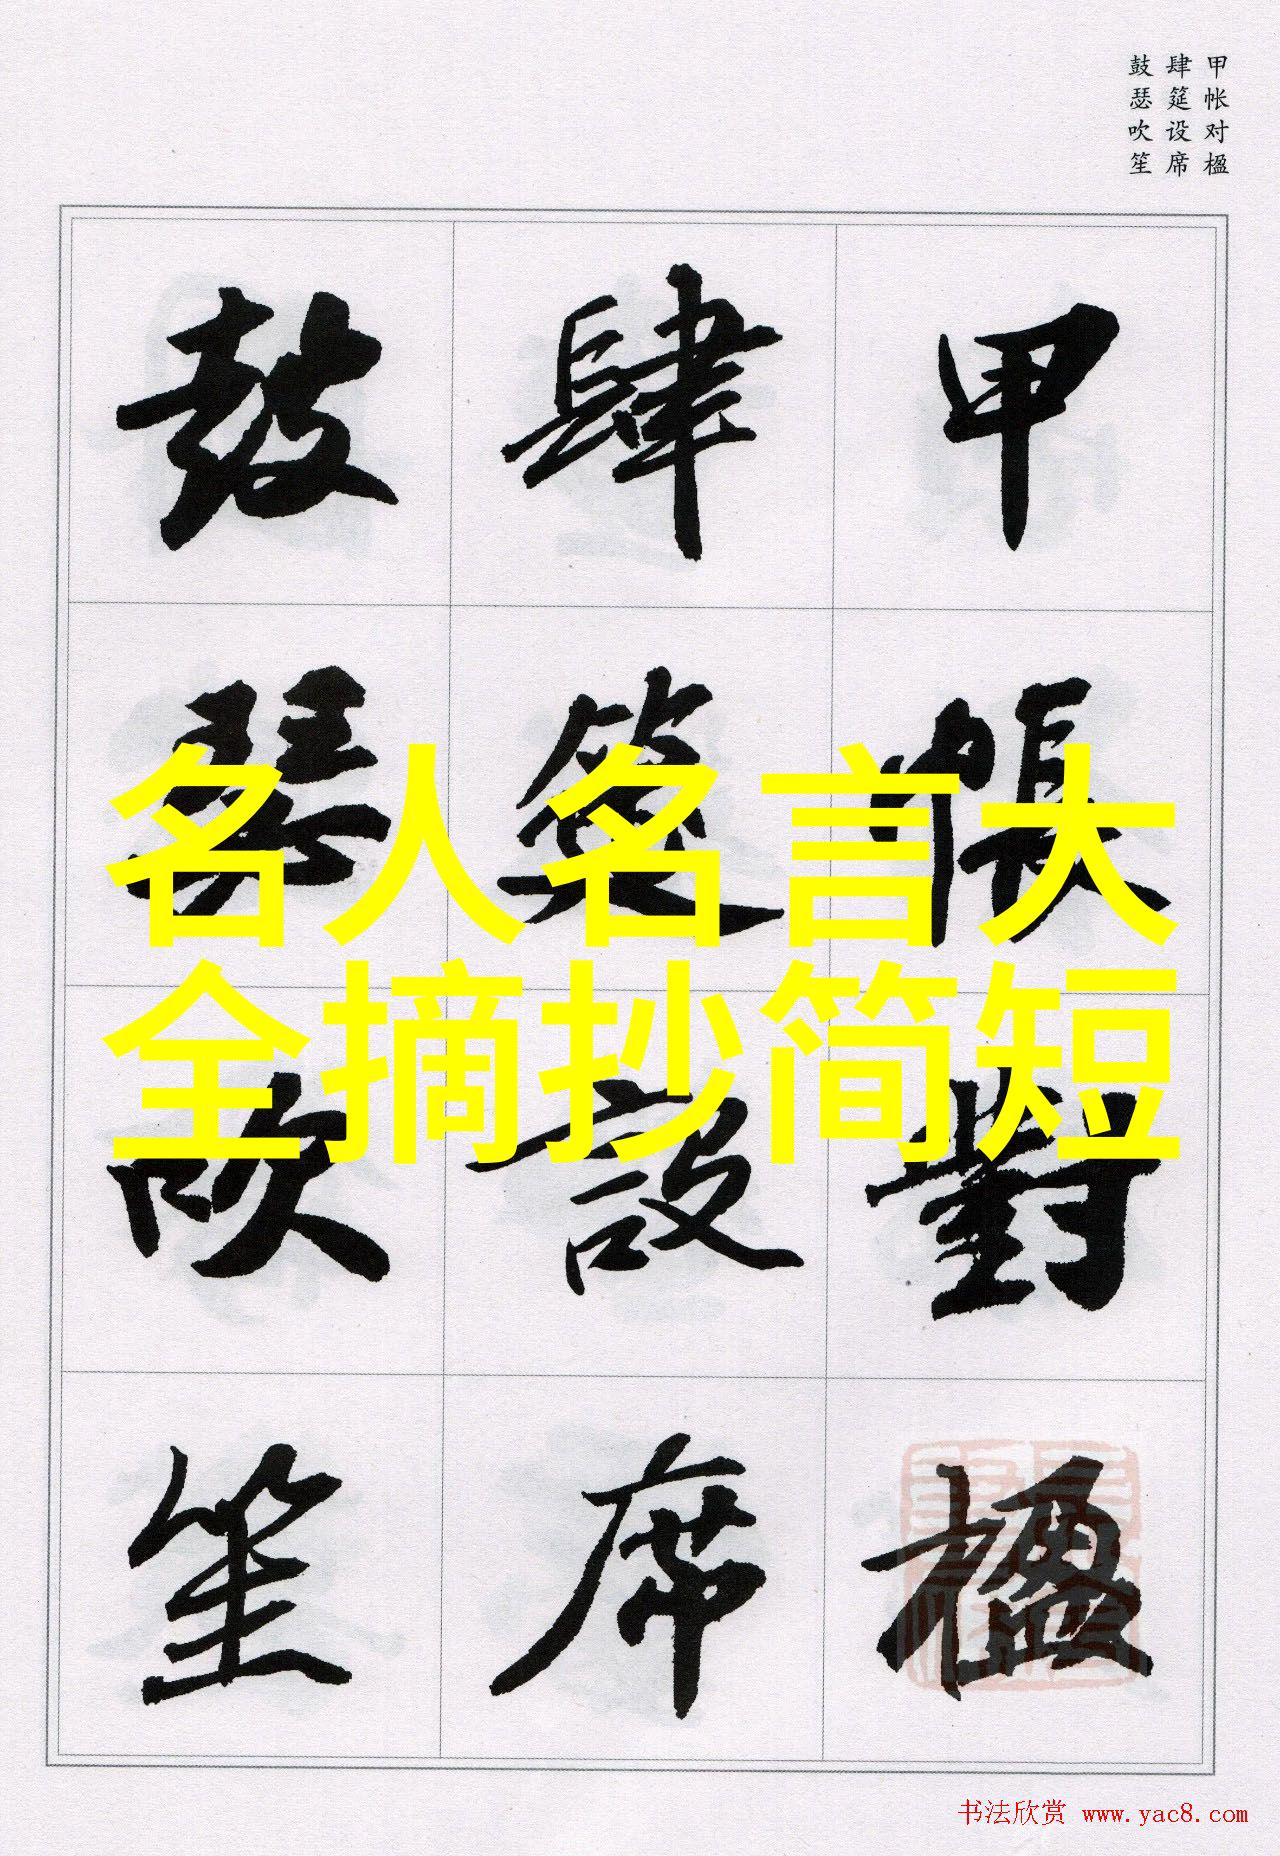 甲帐对楹
肆筵设席
鼓瑟吹笙
甲帳對楹
肆筵設席
鼓瑟吹笙
名人名言大
全摘抄简短
书法欣赏 www.yac8.com